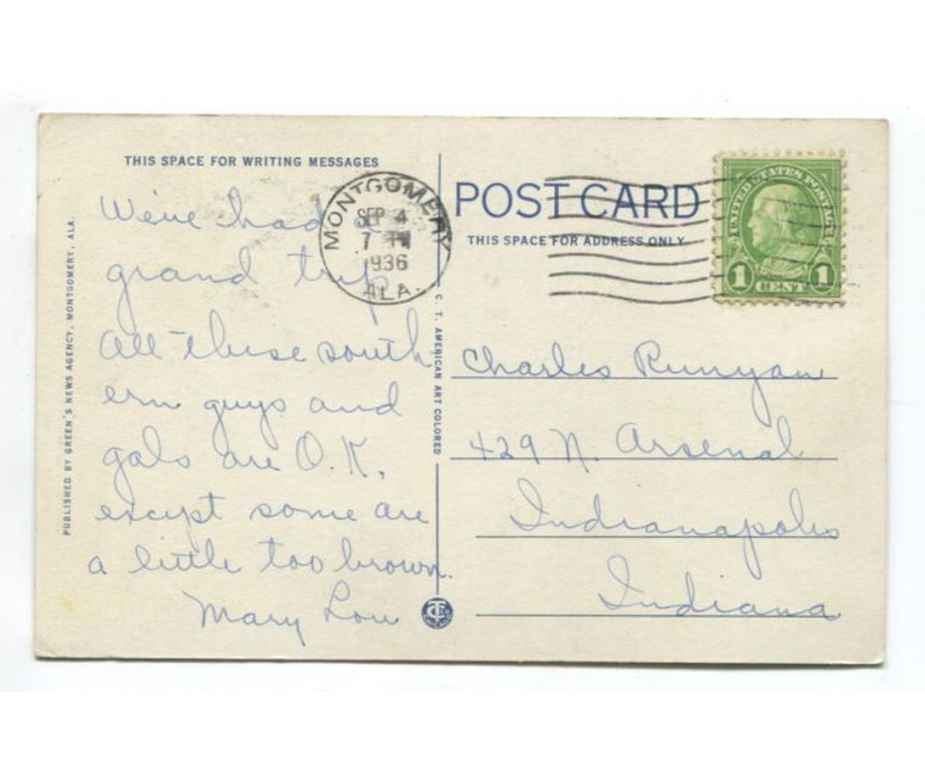 THIS SPACE FOR WRITING MESSAGES
We've had
grand trip
All these south
ern guys and
gals are O.K.
except some are
a little too brown.
Mary Lou
PUBLISHED BY GREEN'S NEWS AGENCY, MONTGOMERY, ALA.
C. T. AMERICAN ART COLORED
MONTGOMERY
SEP 4
7 PM
1936
ALA.
POST CARD
THIS SPACE FOR ADDRESS ONLY
UNITED STATES POSTAGE
1 CENT 1
Charles Runyan
429 N. Arsenal
Indianapolis
Indiana